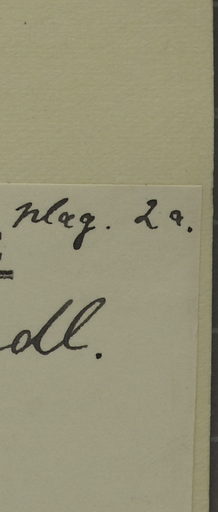 plag. 2a.
dl.